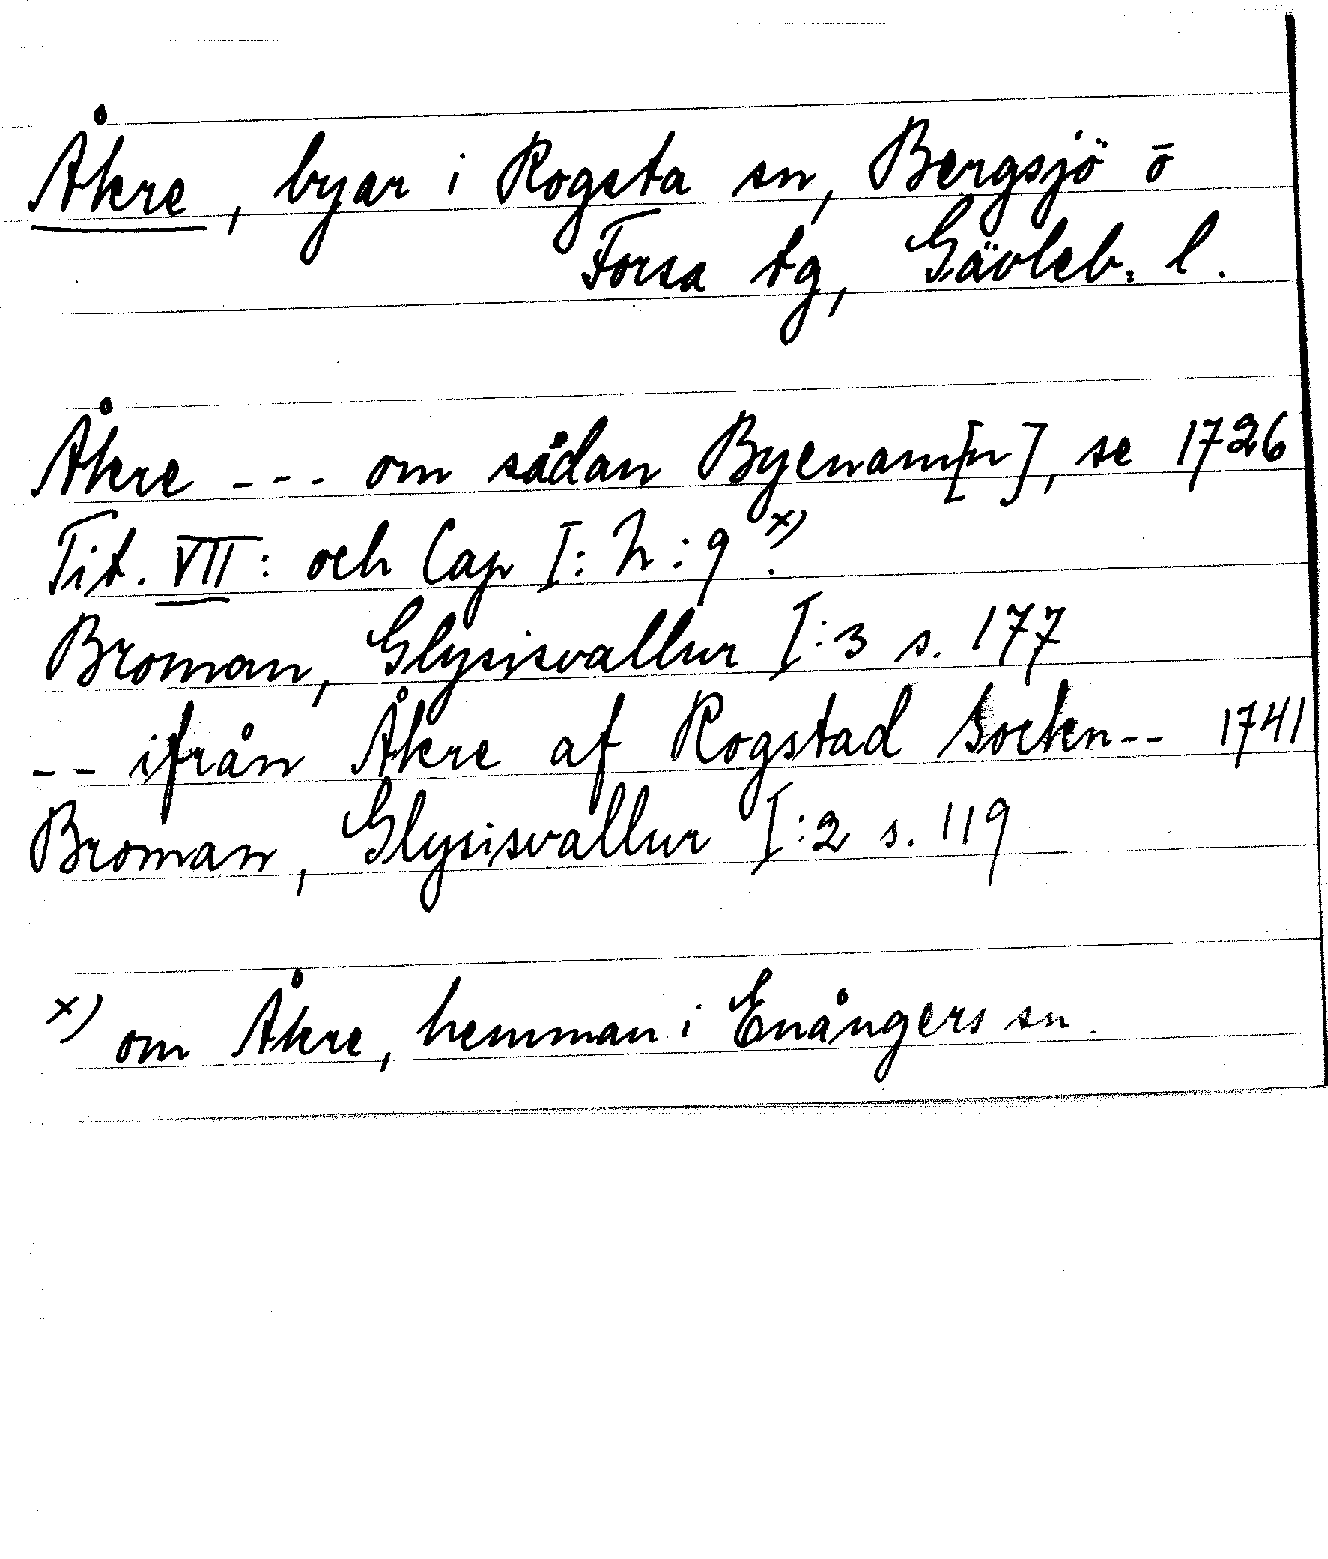 Åkre, byar i Rogsta sn, Bergsjö ō
Forsa tg, Gävleb. l.
Åkre --- om sådan Byenam[n], se 1726
Tit. VII: och Cap I: h: 9 x).
Broman, Glysisvallur I:3 s. 177
-- ifrån Åkre af Rogstad Sockn-- 1741
Broman, Glysisvallur I:2 s. 119
x) om Åkre, hemman i Enångers sn.